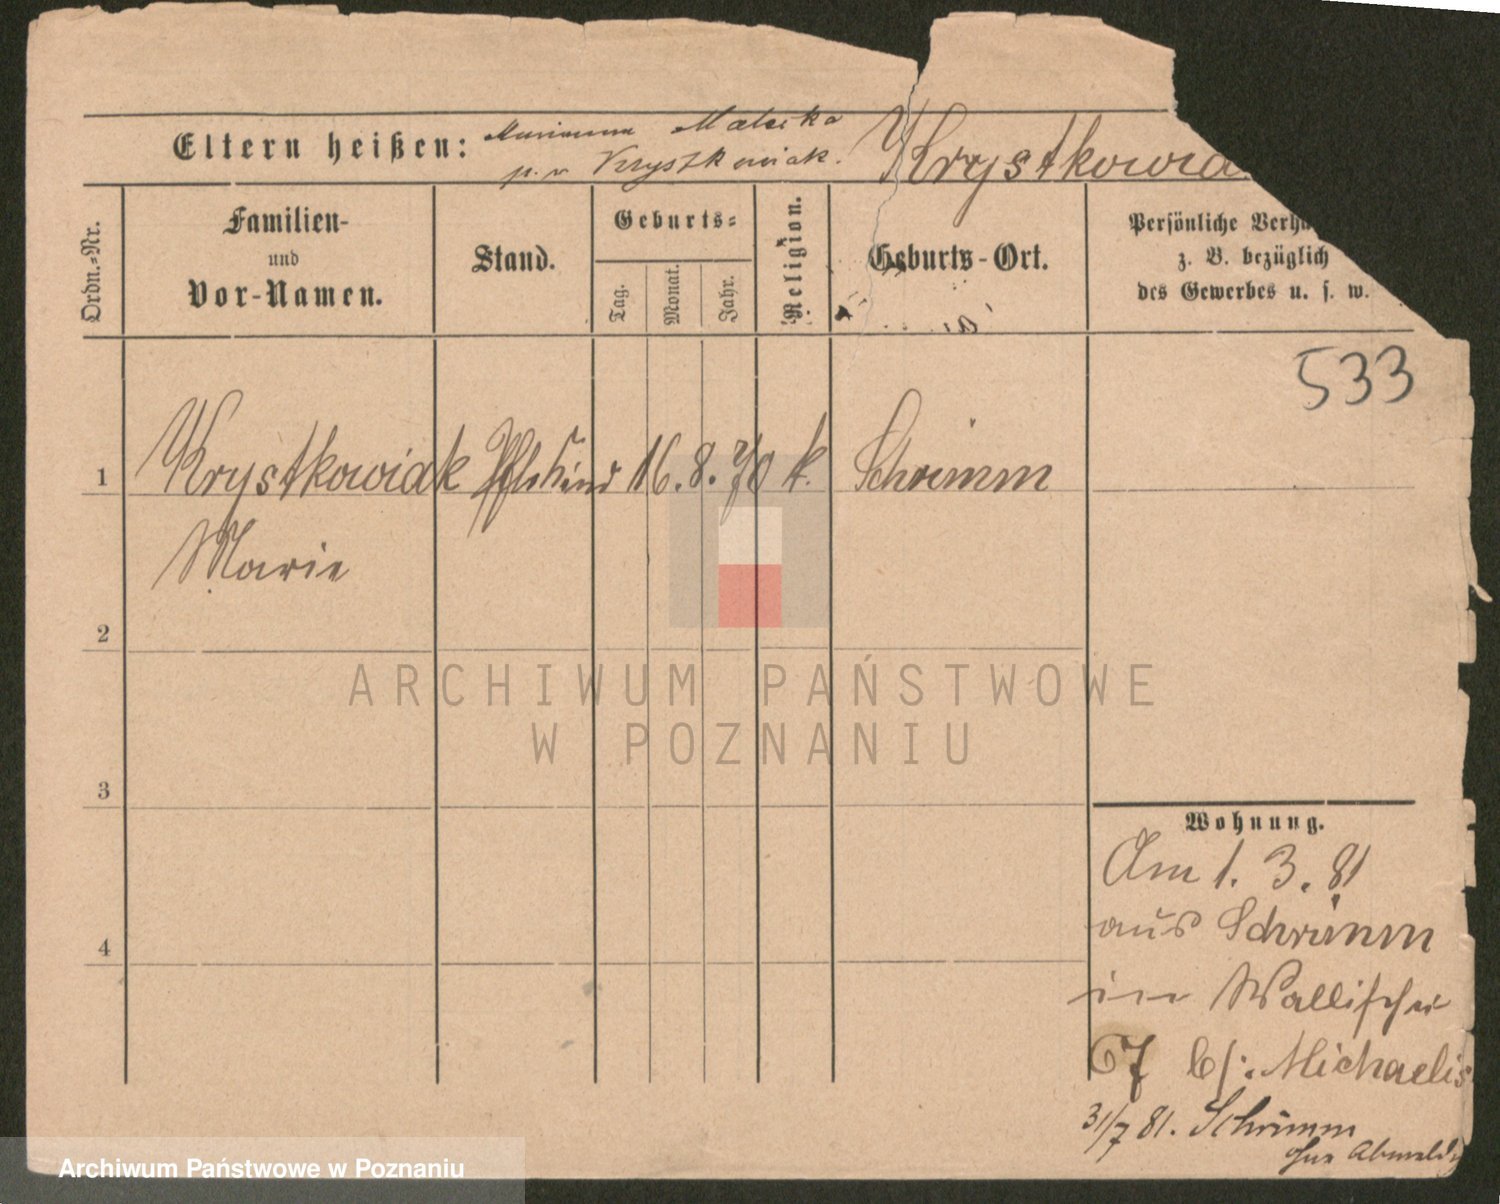 Eltern heißen: Marianna Matecka
p. v. Krystkowiak. Krystkowia
Ordn.-Nr.
Familien-
und
Vor-Namen.
Stand.
Geburts-
Tag.
Monat.
Jahr.
Religion.
Geburts-Ort.
Persönliche Verhä
z. B. bezüglich
des Gewerbes u. s. w.
533
1 Krystkowiak 16. 8. 70 k. Schrimm
Marie
2
3
4
Wohnung.
Am 1. 3. 81
aus Schrimm
in Wallischei
67 bs. Michaelis
31/7 81. Schrimm
ohne Abmeld
ARCHIWUM PAŃSTWOWE
W POZNANIU
Archiwum Państwowe w Poznaniu